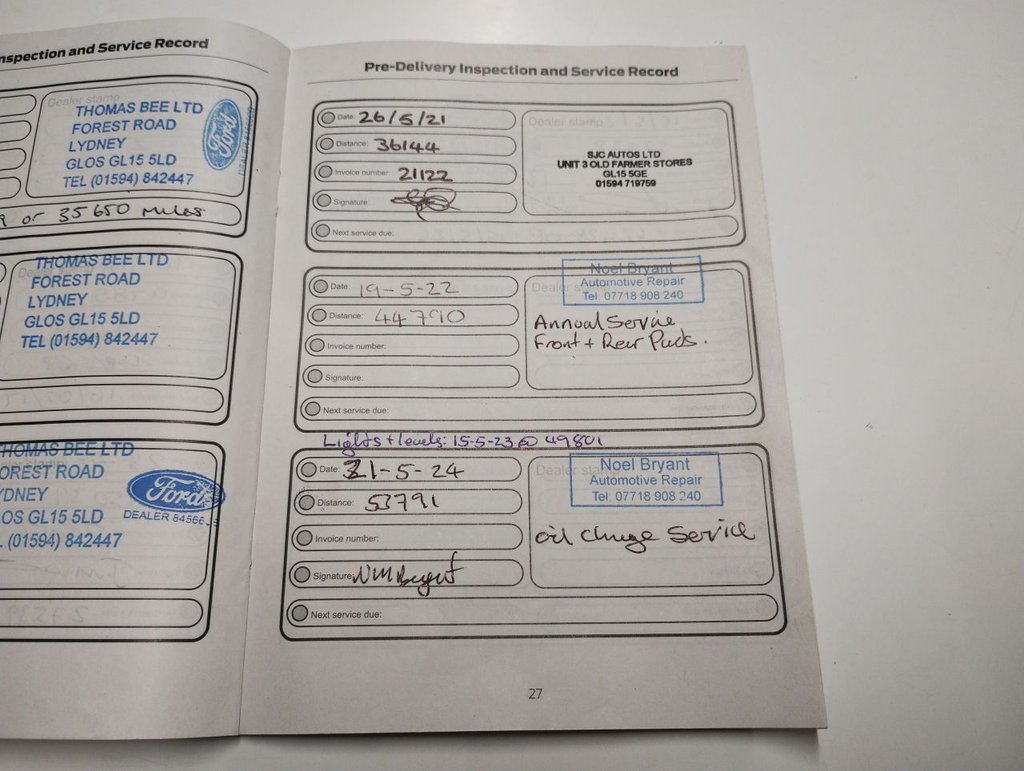 nspection and Service Record
Dealer stamp
THOMAS BEE LTD
FOREST ROAD
LYDNEY
GLOS GL15 5LD
TEL (01594) 842447
Ford
or 35650 miles
THOMAS BEE LTD
FOREST ROAD
LYDNEY
GLOS GL15 5LD
TEL (01594) 842447
HOMAS BEE LTD
OREST ROAD
YDNEY
OS GL15 5LD
(01594) 842447
Ford
DEALER 84566
Pre-Delivery Inspection and Service Record
Date: 26/5/21
Distance: 36144
Invoice number: 21122
Signature:
Next service due:
Dealer stamp
SJC AUTOS LTD
UNIT 3 OLD FARMER STORES
GL15 5GE
01594 719759
Date: 19-5-22
Distance: 44790
Invoice number:
Signature:
Next service due:
Noel Bryant
Automotive Repair
Tel: 07718 908 240
Annual Service
Front + Rear Pads.
Lights + levels: 15-5-23 @ 49801
Date: 21-5-24
Distance: 53791
Invoice number:
Signature: NM Bryant
Next service due:
Dealer stamp
Noel Bryant
Automotive Repair
Tel: 07718 908 240
oil change Service
27